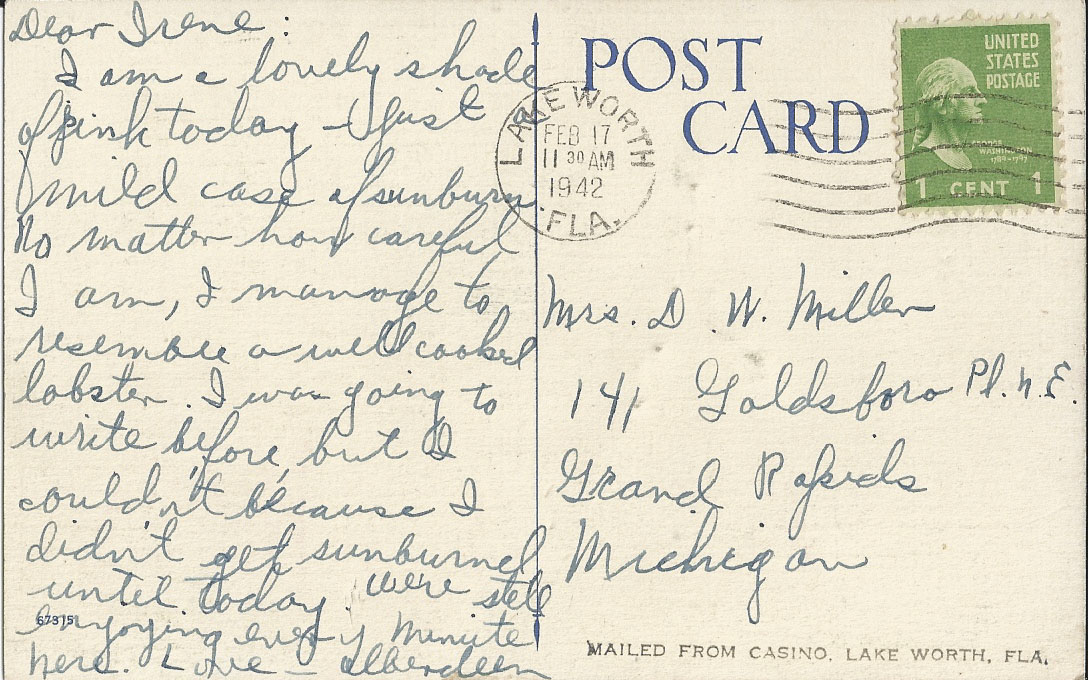 Dear Irene:
I am a lovely shade
of pink today - Just a
mild case of sunburn
No matter how careful
I am, I manage to
resemble a well cooked
lobster. I was going to
write before, but I
couldn't because I
didn't get sunburned
until today. We're still
enjoying every minute
here. Love - Alberdeen
67315
POST
CARD
LAKE WORTH
FEB 17
11 30 AM
1942
FLA.
UNITED
STATES
POSTAGE
GEORGE
WASHINGTON
1789-1797
1 CENT 1
Mrs. D. W. Miller
141 Goldsboro Pl. N.E.
Grand Rapids
Michigan
MAILED FROM CASINO, LAKE WORTH, FLA.